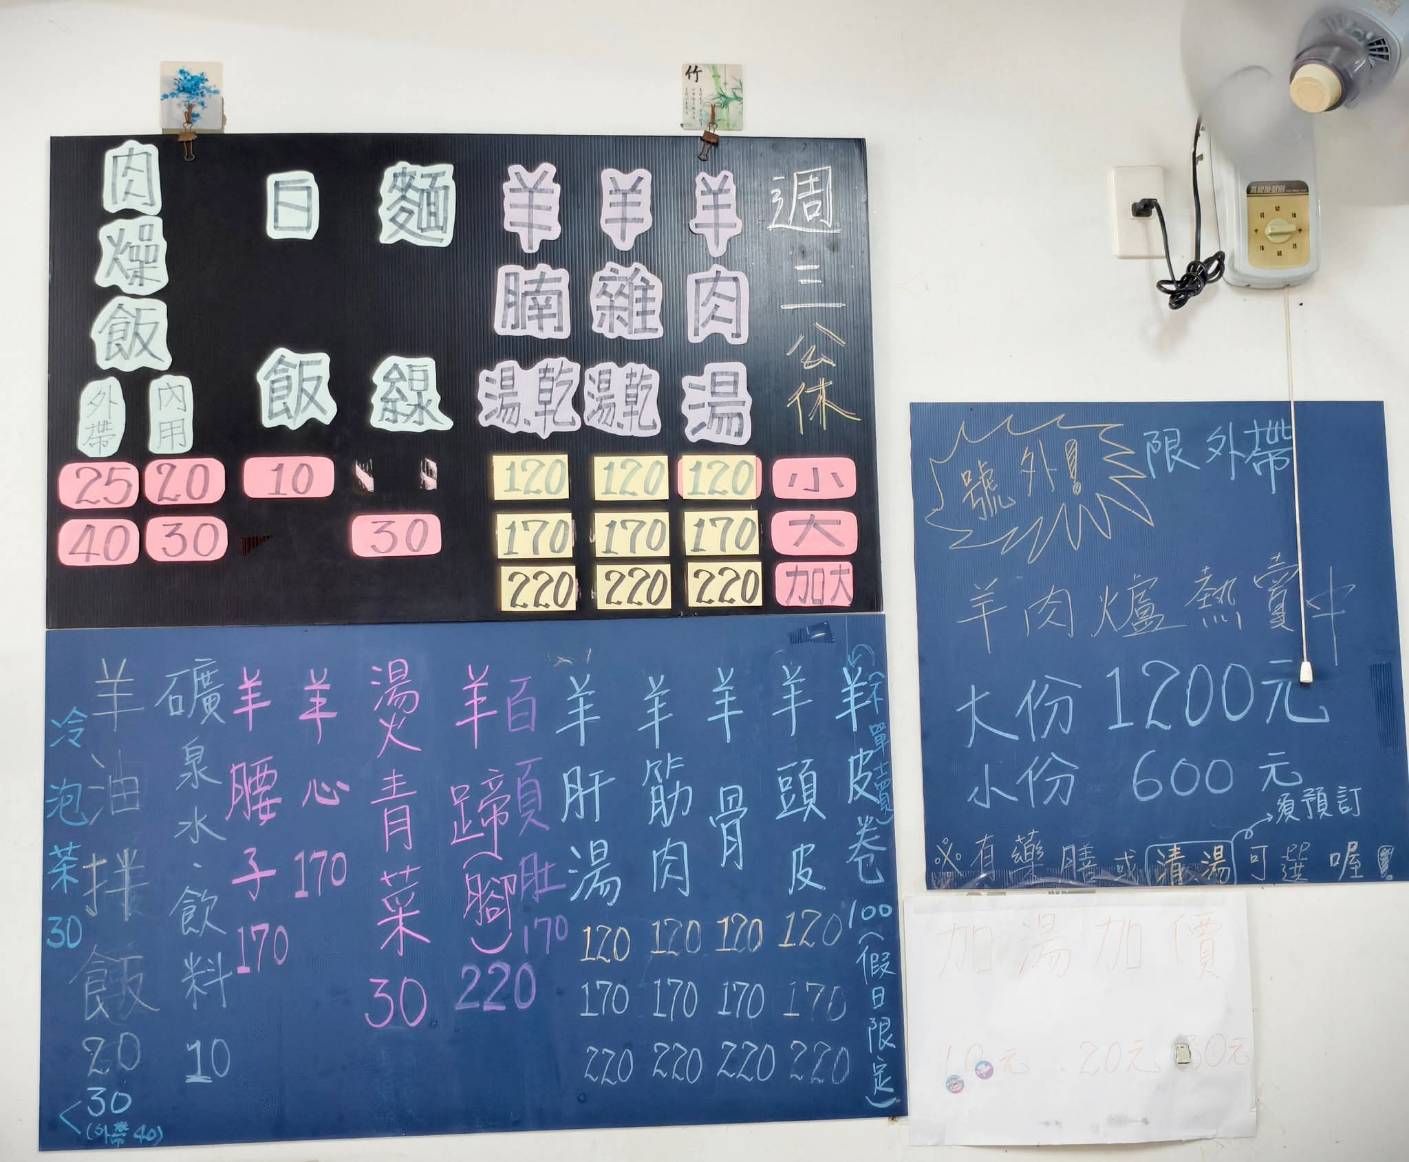 竹
週三公休
小
大
加大
羊肉湯
120
170
220
羊雜湯乾
120
170
220
羊腩湯乾
120
170
220
麵線
30
白飯
10
肉燥飯
內用
20
30
外帶
25
40
羊皮卷100(假日限定)
(不單賣)
羊頭皮
120
170
220
羊骨
120
170
220
羊筋肉
120
170
220
羊肝湯
120
170
220
百頁肚170
羊蹄(腳)220
燙青菜30
羊心170
羊腰子170
礦泉水、飲料10
羊油拌飯20
30
(外帶40)
冷泡茶30
號外!
限外帶
羊肉爐熱賣中
大份 1200元
小份 600元
須預訂
※有藥膳或清湯可選喔!
加湯加價
10元 20元 30元